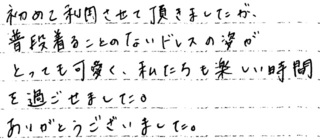 初めて利用させて頂きましたが、
普段着ることのないドレスの姿が
とっても可愛く、私たちも楽しい時間
を過ごせました。
ありがとうございました。